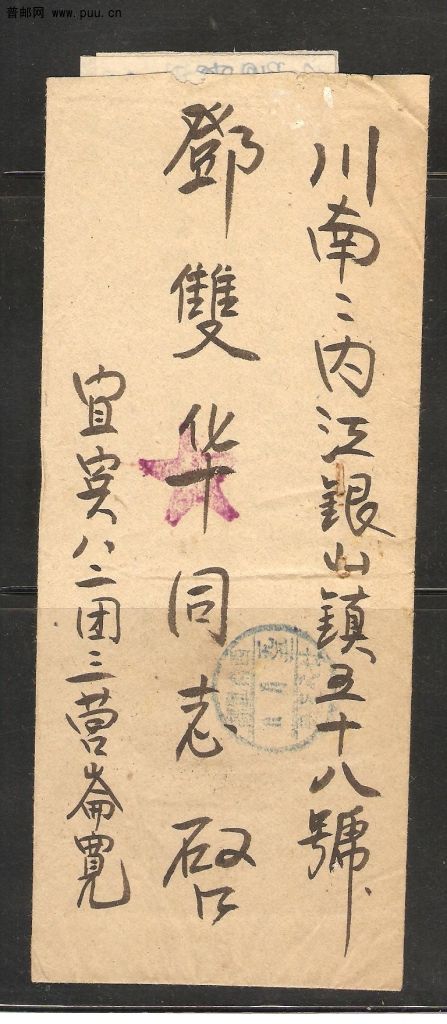 普邮网 www.puu.cn
川南：内江銀山鎮五十八號
鄧雙华同志啓
宜宾八二团三营崙寛